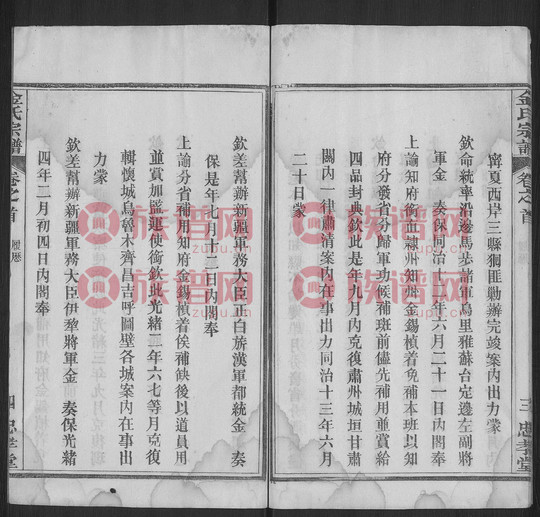 金氏宗譜
卷之首
三
忠孝堂
寧夏西岸三縣獨匪勦辦完竣案內出力蒙
欽命統率沿邊馬步諸軍烏里雅蘇台定邊左副將
軍金 奏保同治十二年六月二十一日內閣奉
上諭知府銜直隸州知州金錫楨着免補本班以知
府分發省分歸軍功候補班前儘先補用並賞給
四品封典欽此是年九月內克復肅州城垣甘肅
關內一律肅清案內在事出力同治十三年六月
二十日蒙
欽差幫辦新疆軍務大臣正白旗漢軍都統金 奏
保是年七月十二日內閣奉
上諭分省補用知府金錫楨着俟補缺後以道員用
並賞加鹽運使銜欽此光緒二年六七等月克復
輯懷城烏魯木齊昌吉呼圖壁各城案內在事出
力蒙
欽差幫辦新疆軍務大臣伊犂將軍金 奏保光緒
四年二月初四日內閣奉
金氏宗譜
卷之首
履歷
四
忠孝堂
族谱网
zupu.cn